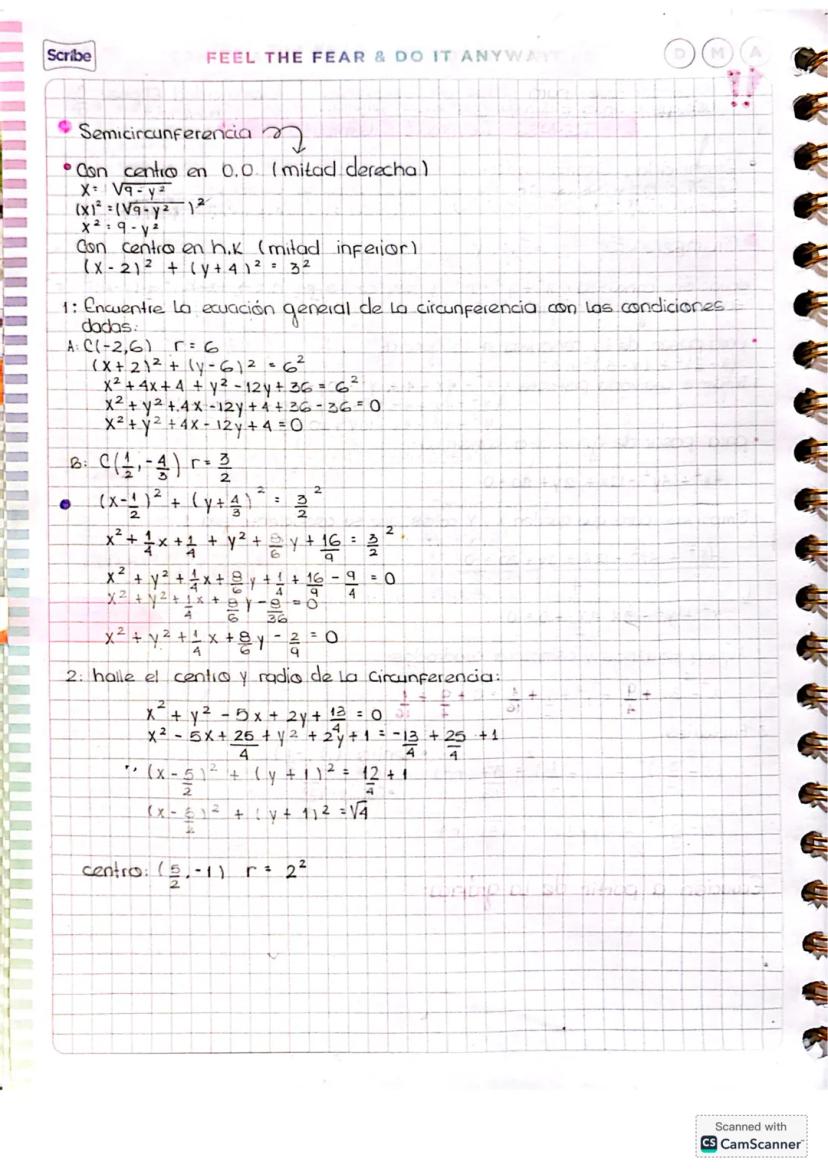 Scribe
FEEL THE FEAR & DO IT ANYWAY
D M A
Semicircunferencia
• Con centro en 0.0 (mitad derecha)
x = √9 - y²
(x)² = (√9 - y²)²
x² = 9 - y²
Con centro en h.k (mitad inferior)
(x - 2)² + (y + 4)² = 3²
1: Encuentre la ecuación general de la circunferencia con las condiciones
dadas:
A: C(-2,6) r = 6
(x + 2)² + (y - 6)² = 6²
x² + 4x + 4 + y² - 12y + 36 = 6²
x² + y² + 4x - 12y + 4 + 36 - 36 = 0
x² + y² + 4x - 12y + 4 = 0
B: C(1/2, -4/3) r = 3/2
(x - 1/2)² + (y + 4/3)² = 3/2²
x² + 1/4x + 1/4 + y² + 8/6y + 16/9 = 3/2²
x² + y² + 1/4x + 8/6y + 1/4 + 16/9 - 9/4 = 0
x² + y² + 1/4x + 8/6y - 8/36 = 0
x² + y² + 1/4x + 8/6y - 2/9 = 0
2: halle el centro y radio de la Circunferencia:
x² + y² - 5x + 2y + 13/4 = 0
x² - 5x + 25/4 + y² + 2y + 1 = -13/4 + 25/4 + 1
(x - 5/2)² + (y + 1)² = 12/4 + 1
(x - 5/2)² + (y + 1)² = √4
centro: (5/2, -1) r = 2²
Scanned with
CS CamScanner